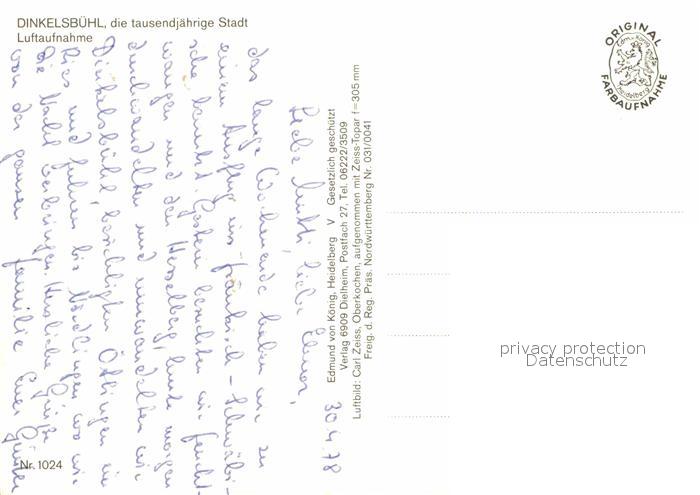 DINKELSBÜHL, die tausendjährige Stadt
Luftaufnahme
30.4.78
Liebe Mutti, liebe
das lange Wochenende haben wir zu
einem Ausflug ins fränkisch-schwäbi-
sche benutzt. Gestern besuchten wir Feucht-
wangen und den Hesselberg, heute morgen
durchwanderten und umwanderten wir
Dinkelsbühl, besichtigten Öttingen im
Ries und fuhren bis Nördlingen wo wir
die Nacht verbringen. Herzliche Grüße
von der ganzen Familie Euer Günter
Nr. 1024
Edmund von König, Heidelberg V Gesetzlich geschützt
Verlag 6909 Dielheim, Postfach 27, Tel. 06222/3509
Luftbild: Carl Zeiss, Oberkochen, aufgenommen mit Zeiss-Topar f=305 mm
Freig. d. Reg. Präs. Nordwürttemberg Nr. 031/0041
ORIGINAL
Edm. v. König
Heidelberg
FARBAUFNAHME
privacy protection
Datenschutz